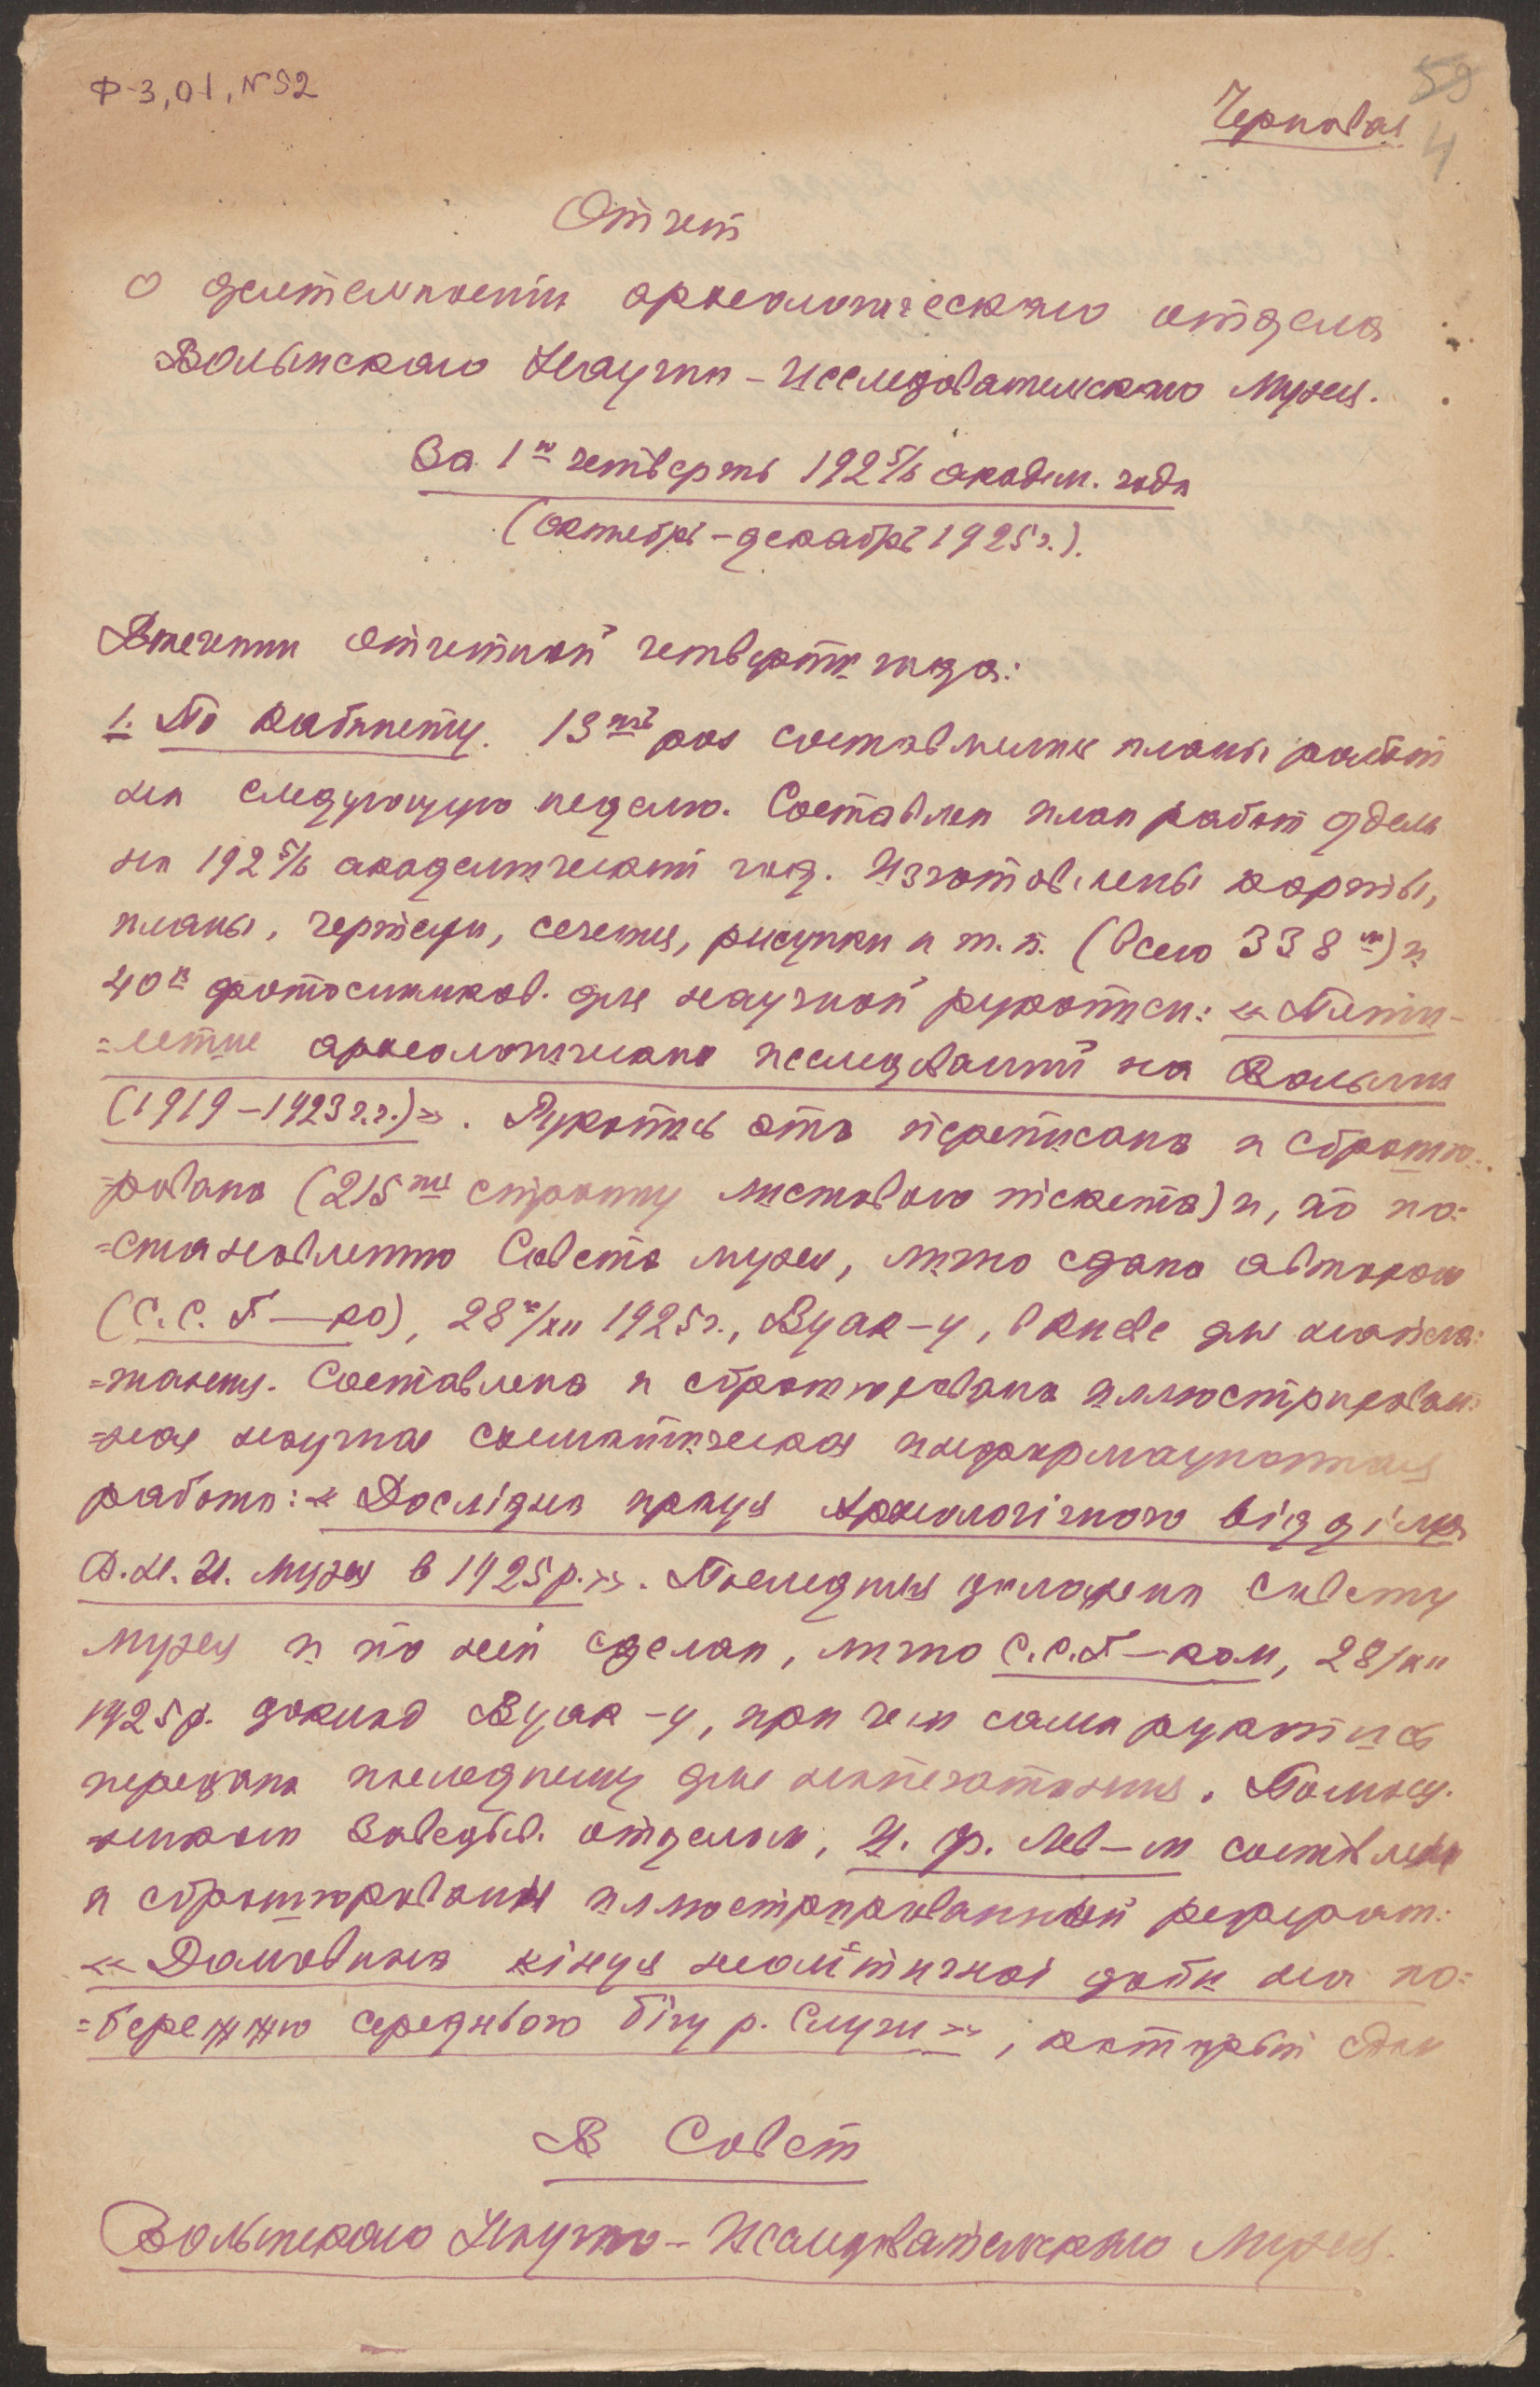 Ф-3, О1, №52
59
Черновая
4
Отчет
о деятельности археологическаго отдела
Волынскаго Научно-Исследовательскаго Музея.
За 1ю четверть 1925/6 академ. года
(октябрь-декабрь 1925 г.).
Втечении отчетной четверти года:
1. По кабинету. 13ть раз составлялись планы работ
на следующую неделю. Составлен план работ отдела
на 1925/6 академический год. Изготовлены карты,
планы, чертежи, сечения, рисунки и т.п. (всего 338м) и
40к фотоснимков для научной рукописи: «Пяти-
=летие археологических исследований на Волыни
(1919-1923 г.г.)». Рукопись эта переписана и сброшю-
=рована (215ть страниц листового пискета) и, по по=
=становлению Совета музея, лично сдана автором
(С.С. Г—ко), 28го/XII 1925 г., Вуак-у, в Киеве для напеча=
=тания. Составлена и сброшюрована иллюстрирован=
=ная научная схематическая информационная
работа: «Дослідча праця Археологічного відділа
В.Н.И. Музея в 1925 р.». Последняя доложена Совету
музея и по ней сделан, лично С.С.Г—ком, 28/XII
1925 р. доклад Вуак-у, при чем сама рукопись
передана последнему для напечатания. Помощ-
=ником Заведыв. отделом, И. Ф. Лев—м составлен
и сброшюрован иллюстрированный реферат:
«Домовина кінця неолітичної доби на по=
=бережжю середнього бігу р. Случи», который сдан
В Совет
Волынскаго Научно-Исследовательскаго Музея.